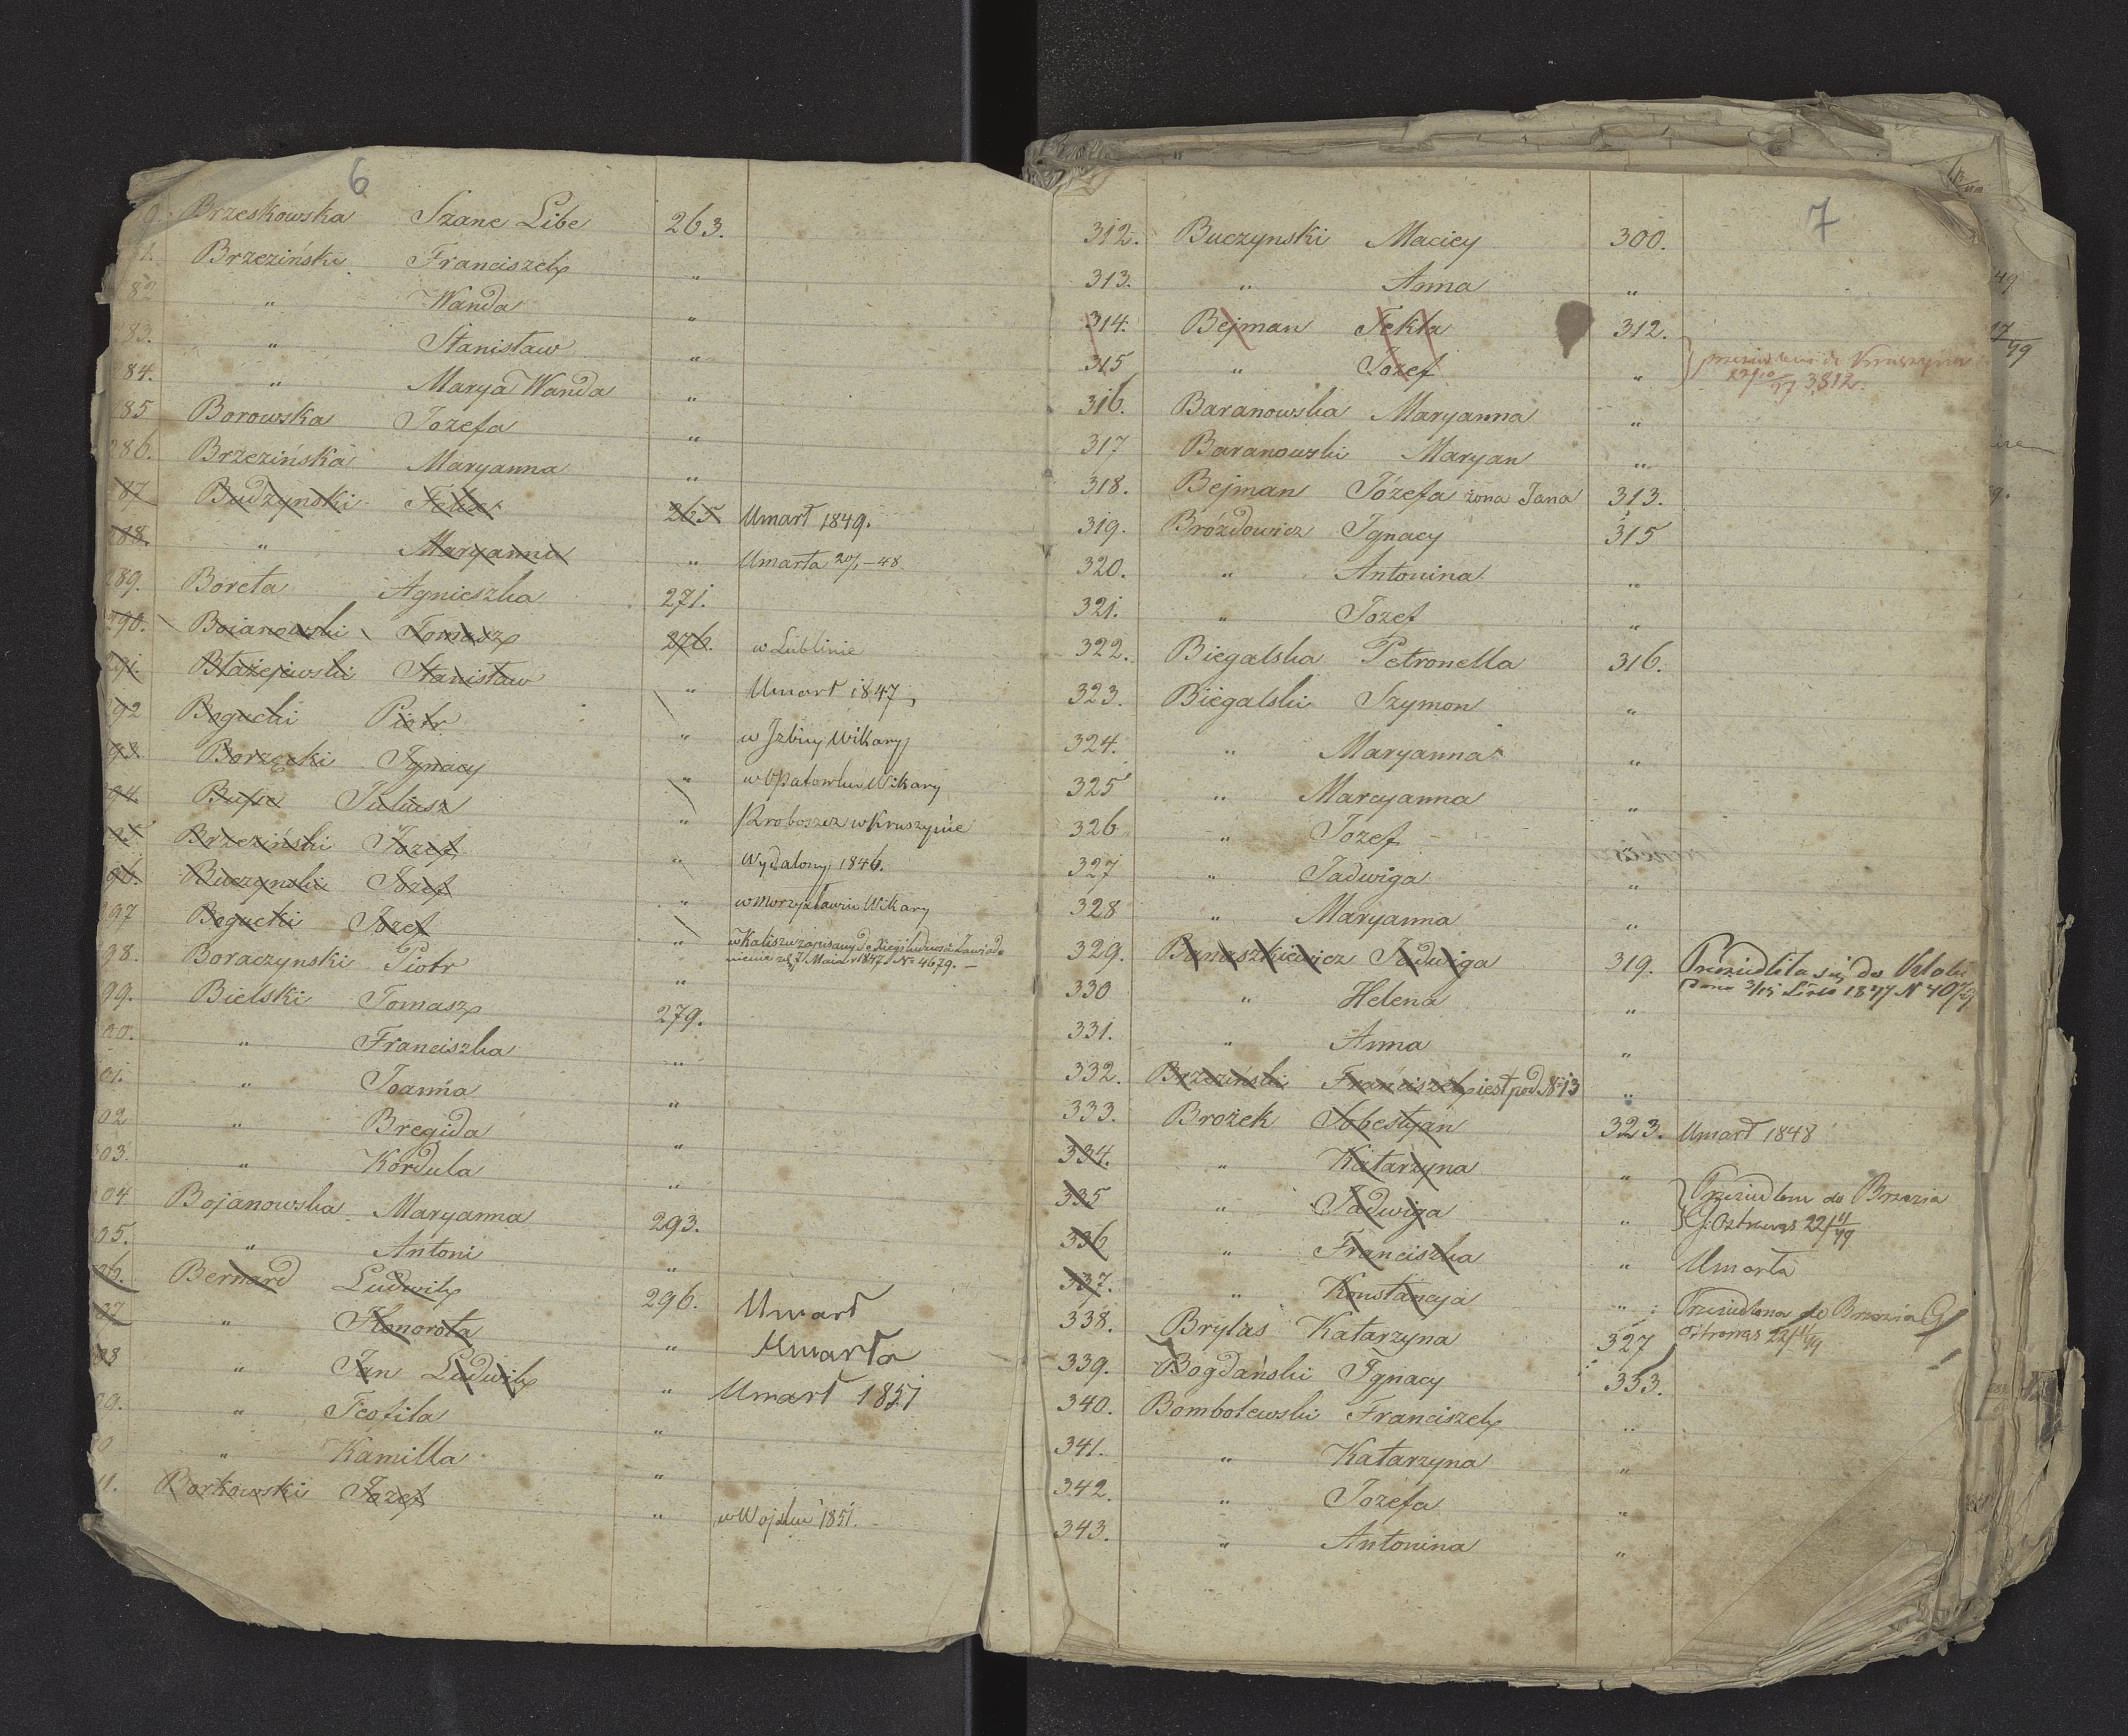 6
0. Brzeskowska Szane Libe 263.
1. Brzeziński Franciszek „
82 „ Wanda „
83. „ Stanisław „
84. „ Marya Wanda „
85 Borowska Jozefa „
286. Brzezińska Maryanna „
287 Budzynski Felix 265 Umarł 1849.
288. „ Maryanna „ Umarła 20/1-48
289. Boreta Agnieszka 271.
290. Boianowski Tomasz 276. w Lublinie
291. Błażejewski Stanisław „ Umarł 1847
292 Bogucki Piotr „ w Izbicy Wikary
93. Borzęcki Ignacy „ w Opatowku Wikary
94. Busse Juliusz „ Proboszcz w Kruszynie
95 Brzeziński Jozef „ Wydalony 1846.
96. Buczynski Jozef „ w Morzysławiu Wikary
297 Bogucki Jozef „ w Kaliszu zapisany do Xiegi ludnosci Zawiado
mienie Maia 1847 No 4679. –
98. Boraczynski Piotr „
99. Bielski Tomasz 279.
00. „ Franciszka „
01. „ Joanna „
02 „ Bregida „
03. „ Kordula „
04 Bojanowska Maryanna 293.
05. „ Antoni „
06. Bernard Ludwik 296. Umarł
07 „ Honorota „ Umarła
08 „ Jan Ludwik „ Umarł 1851
09. „ Teofila „
0 „ Kamilla „
11. Borkowski Jozef „ w Wojsku 1851.
7
312. Buczynski Maciey 300.
313. „ Anna „
314. Bejman Tekla 312.
315 „ Jozef „ do Kruszyna
3812.
316. Baranowska Maryanna „
317 Baranowski Maryan „
318. Bejman Józefa żona Jana 313.
319. Bróżdowicz Ignacy 315
320. „ Antonina „
321. „ Jozef „
322. Biegalska Petronella 316.
323. Biegalski Szymon „
324. „ Maryanna „
325 „ Maryanna „
326 „ Jozef
327 „ Jadwiga „
328 „ Maryanna „
329. Banaszkiewicz Jadwiga 319. Przesiedliła się do
330 „ Helena „
331. „ Anna „
332. Brzeziński Franciszek iest pod N 13 „
333. Brożek Sobestyan 323. Umarł 1848
334. „ Katarzyna „
335 „ Jadwiga „ Przesiedleni do Brzezia
G. Ostrowąs 22/4 49
336 „ Franciszka „ Umarła
337. „ Konstancya „ Przesiedlona do Brzezia G
Ostrowąs 22/4 49
338. Brylas Katarzyna 327
339. Bogdański Ignacy 333.
340. Bombolewski Franciszek „
341. „ Katarzyna „
342. „ Jozefa „
343. „ Antonina „